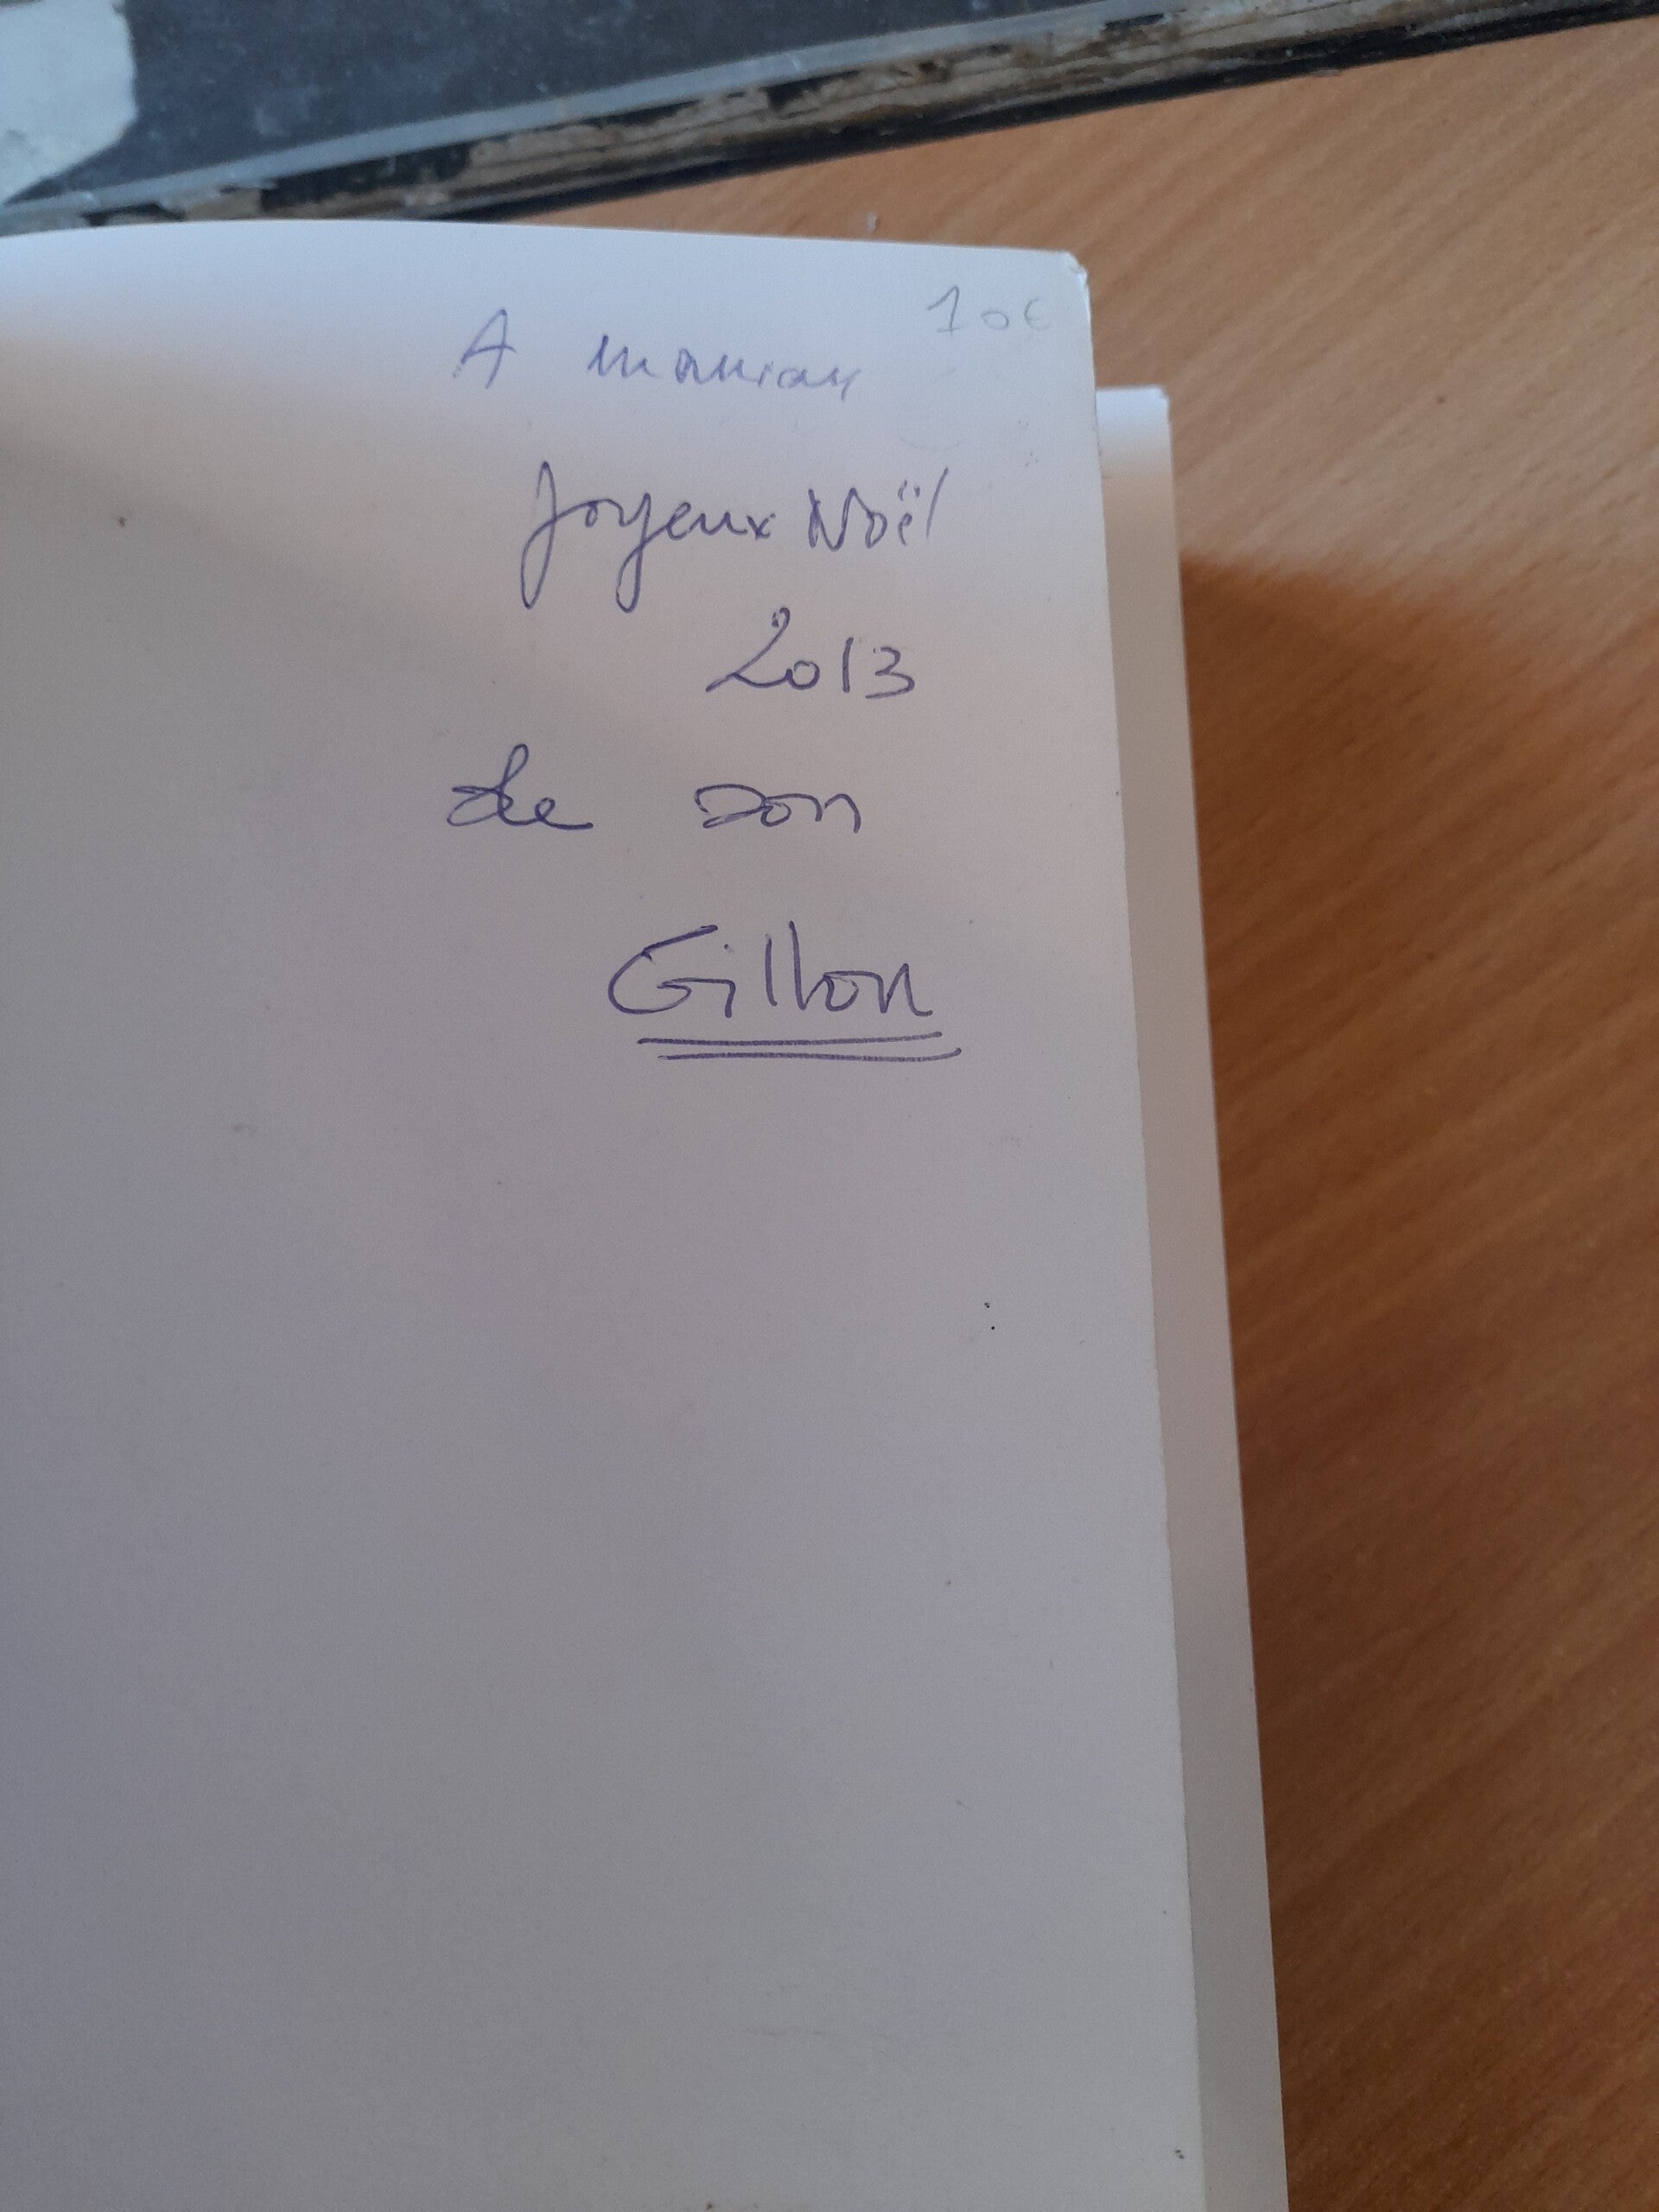 10€
A maman
Joyeux Noël
2013
de son
Gillon